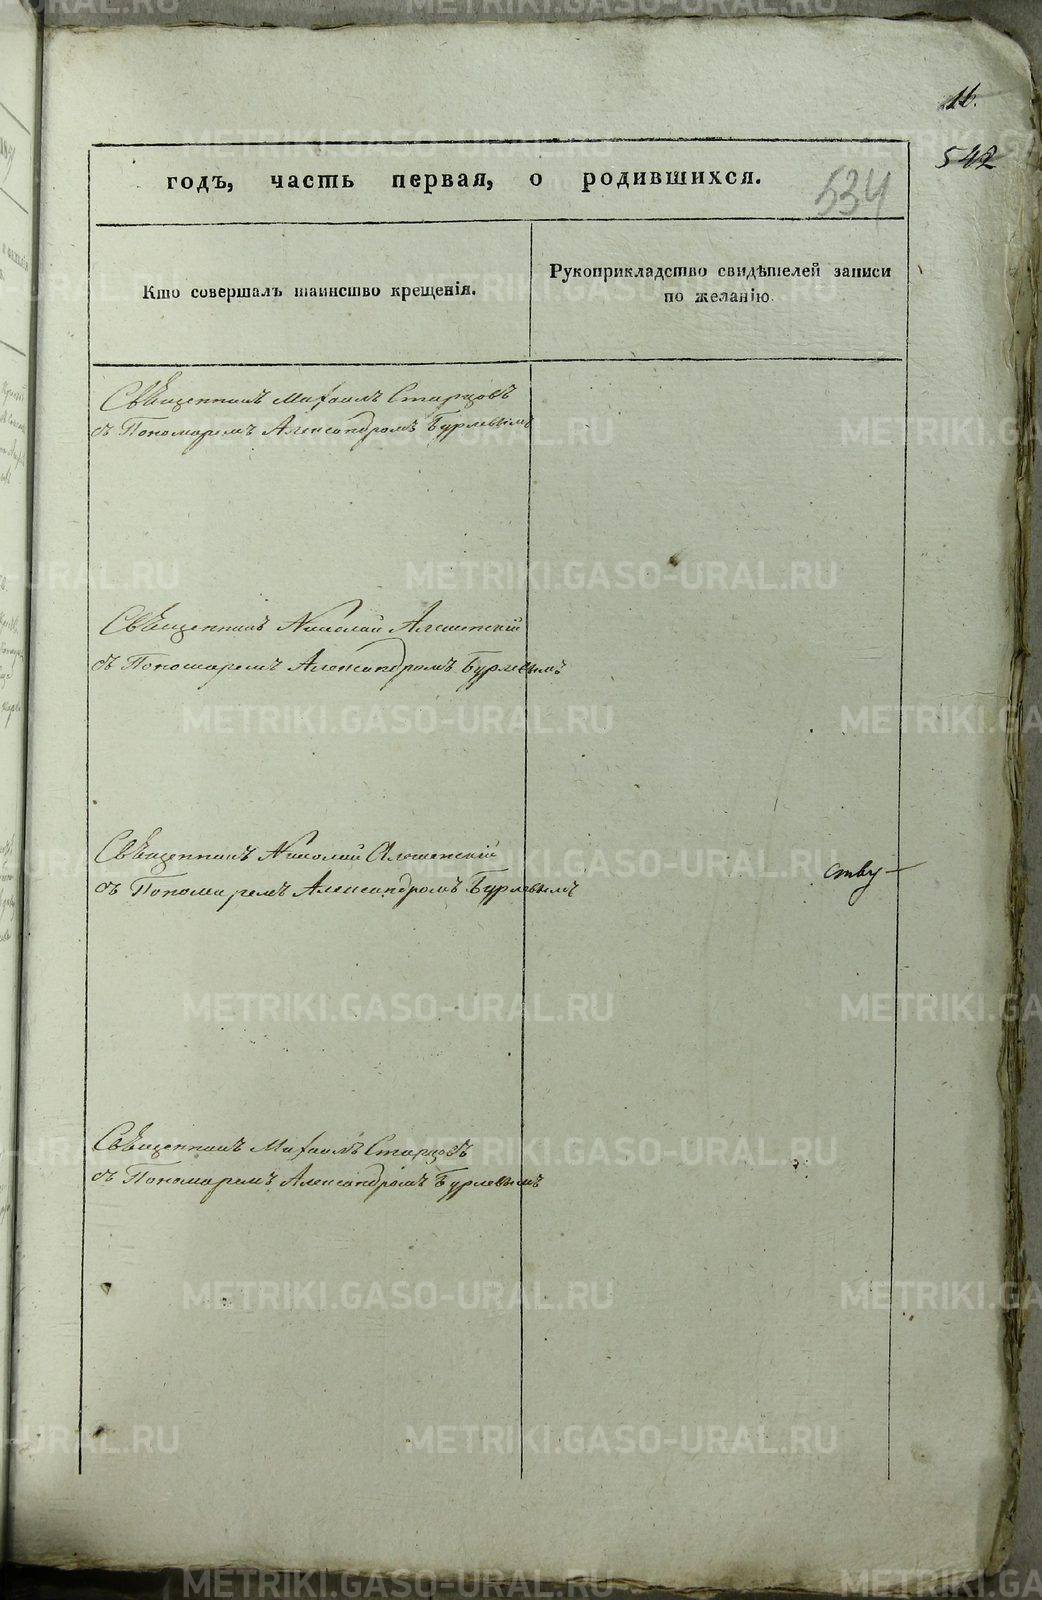 16.
542
534
годъ, часть первая, о родившихся.
Кто совершалъ таинство крещенія.
Рукоприкладство свидѣтелей записи
по желанію.
Свѣщенникъ Михаилъ Старцовъ
съ Пономаремъ Александромъ Бурлевымъ
Свѣщенникъ Николай Алешенскій
съ Пономаремъ Александромъ Бурлевымъ
Свѣщенникъ Николай Алешенскій
съ Пономаремъ Александромъ Бурлевымъ
ству
Свѣщенникъ Михаилъ Старцовъ
съ Пономаремъ Александромъ Бурлевымъ
METRIKI.GASO-URAL.RU